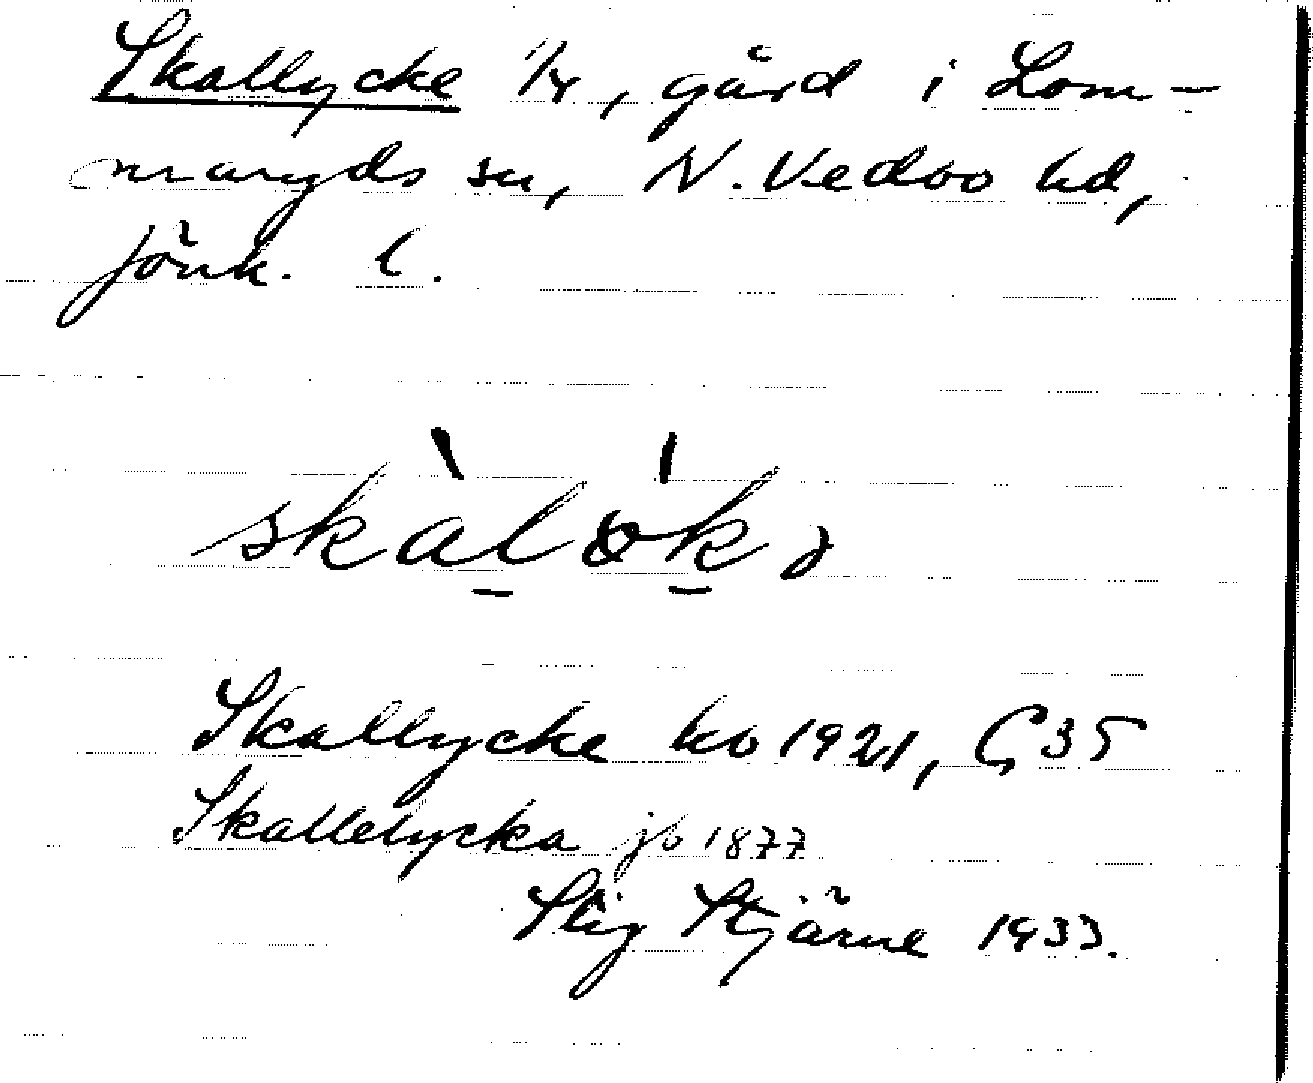 Skallycke 1/4, gård i Lom-
maryds sn, N. Vedbo hd,
Jönk. l.
skàlø̍kə
Skallycke kb 1921, G 35
Skallelycka jb 1877
Stig Stjärne 1933.